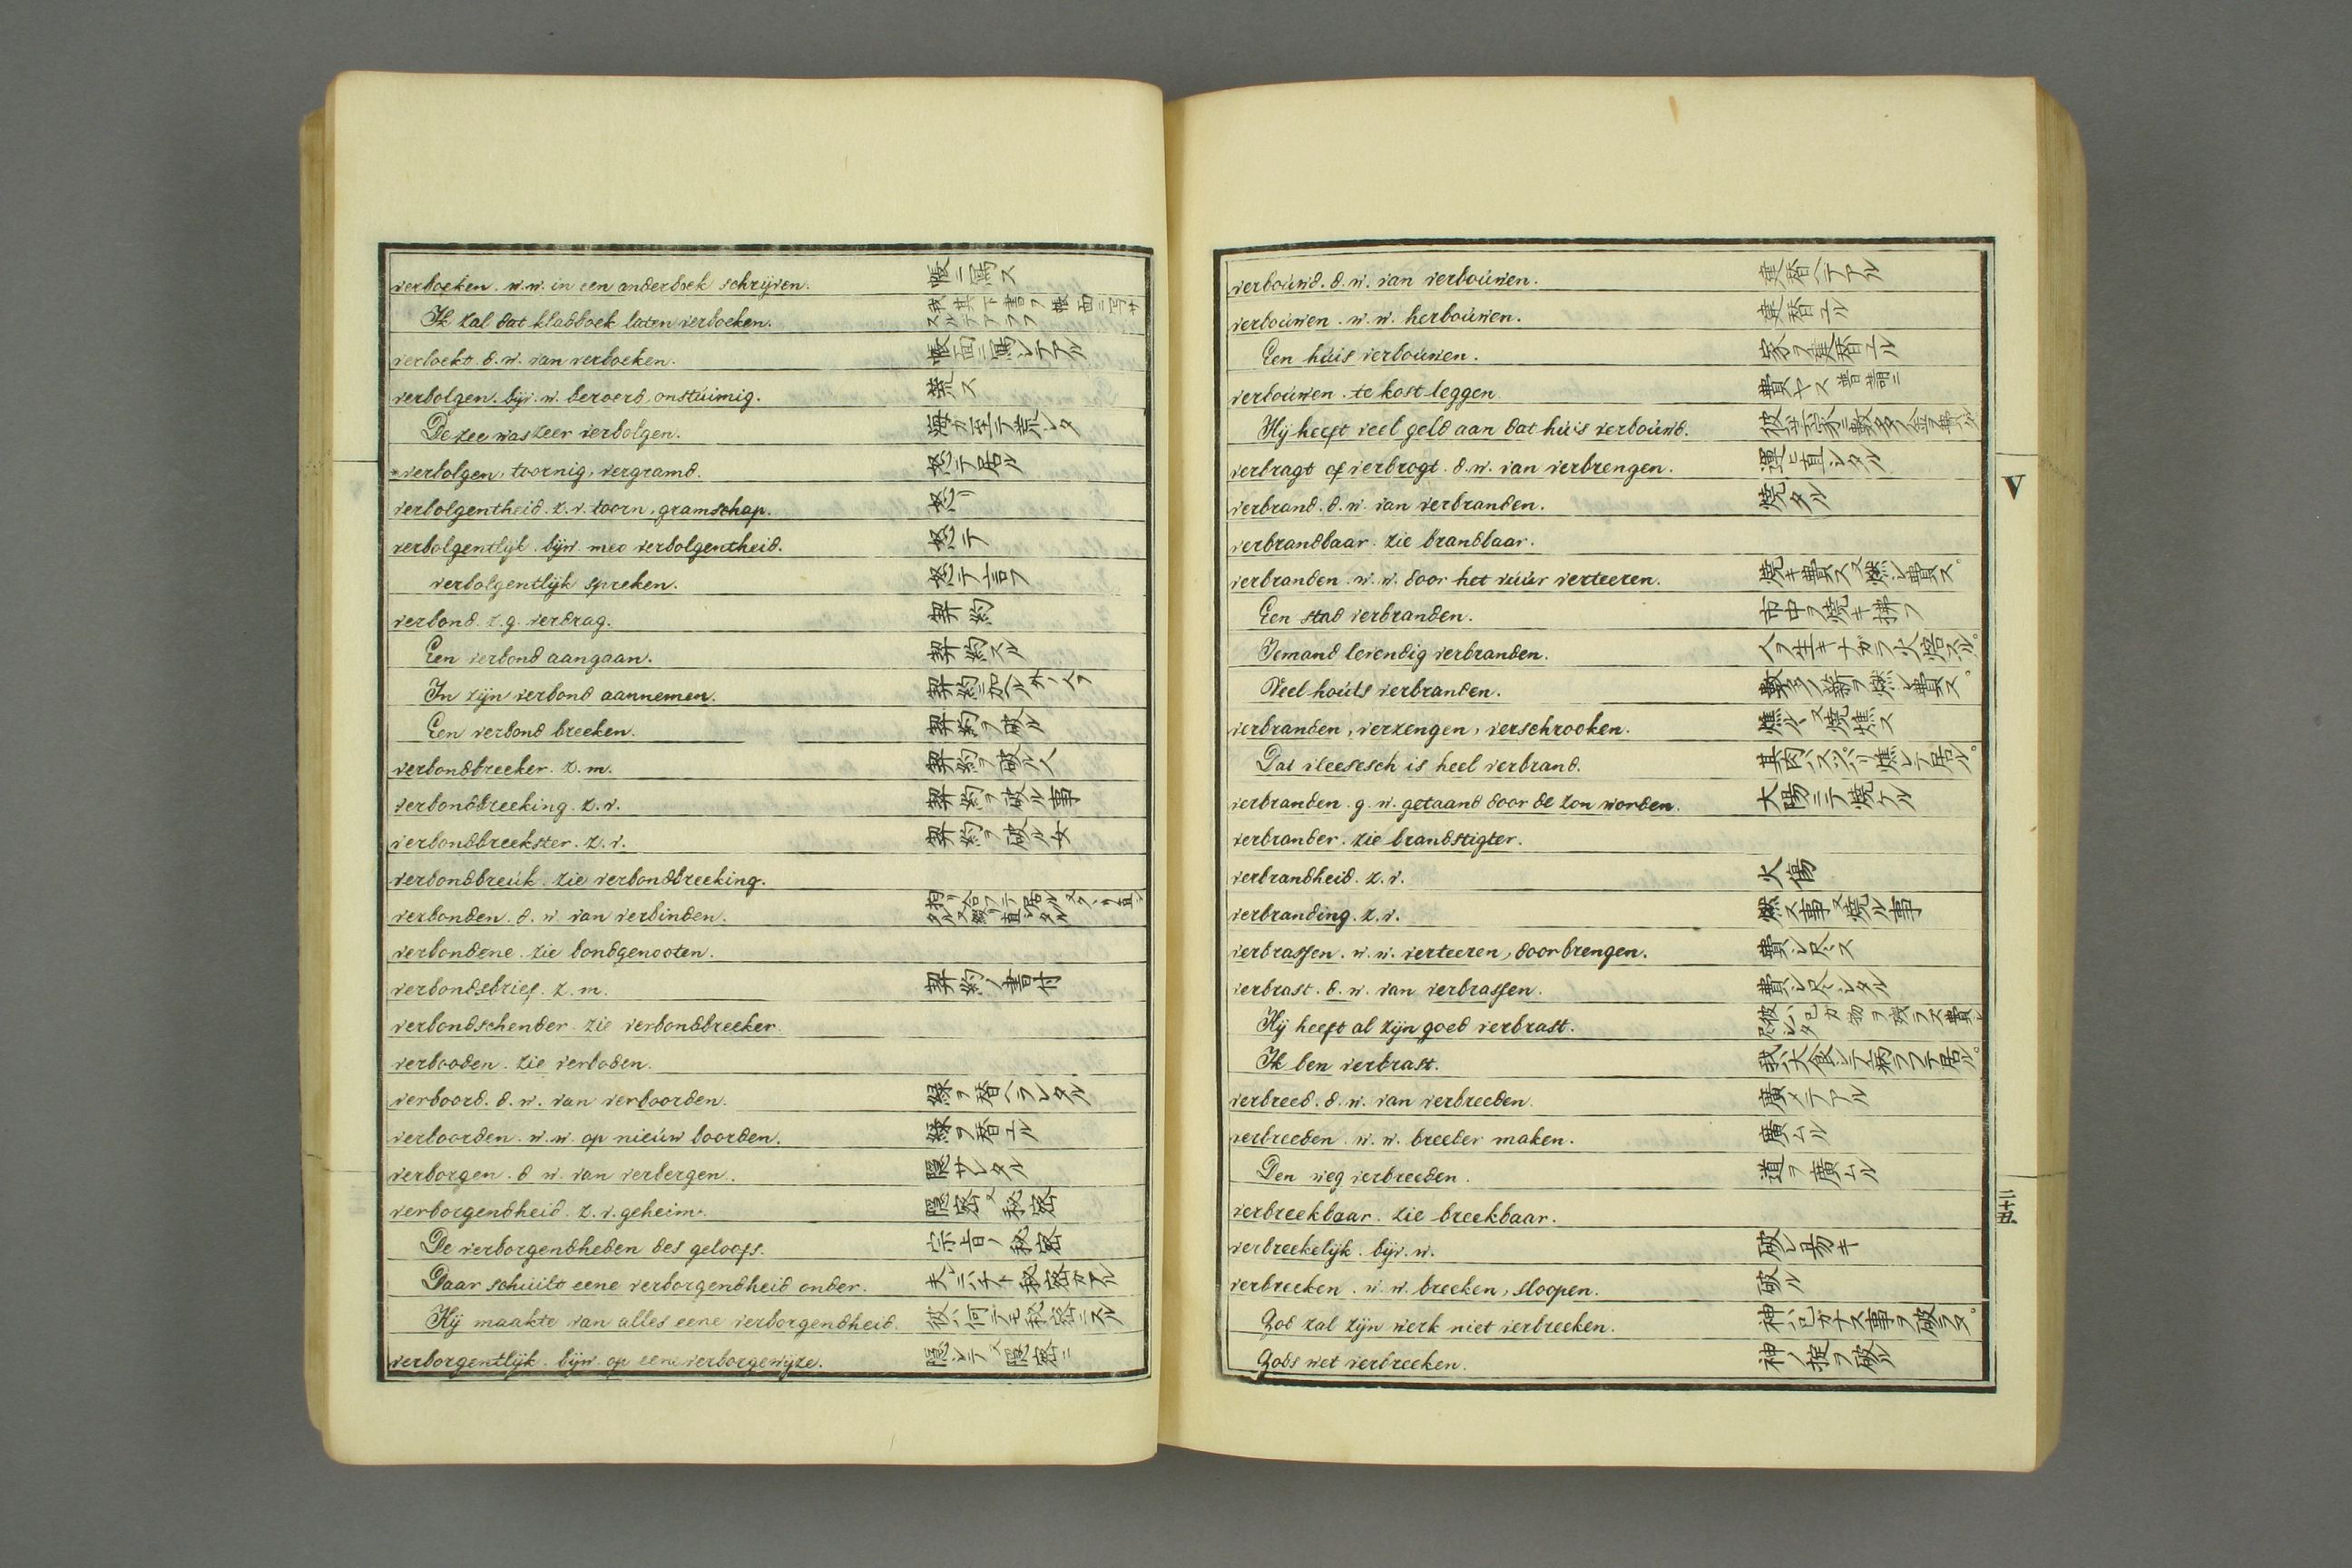 verboeken. w.w. in een anderboek schrijven. 帳ニ寫ス
Ik zal dat kladboek laten verboeken. 我其下書ヲ帳面ニ写サスルデアラフ
verboekt. d.w. van verboeken. 帳面ニ寫シテアル
verbolgen. bijv. w. beroerd, onstúimig. 荒ス
De zee was zeer verbolgen. 海カ至テ荒レタ
verbolgen, toornig, vergramd. 怒テ居ル
verbolgentheid. z.v. toorn, gramschap. 怒リ
verbolgentlijk. bijw. med verbolgentheid. 怒テ
verbolgentlijk spreken. 怒テ言フ
verbond. z.g. verdrag. 契約
Een verbond aangaan. 契約スル
In zijn verbond aannemen. 契約ニ加ヘル外ノ人ヲ
Een verbond breeken. 契約ヲ破ル
verbondbreeker. z.m. 契約ヲ破ル人
verbondbreeking. z.v. 契約ヲ破ル事
verbondbreekster. z.v. 契約ヲ破ル女
verbondbreúk. zie verbondbreeking.
verbonden. d.w van verbinden.
verbondene. zie bondgenooten.
verbondsbrief. z.m. 契約ノ書付
verbondschender. zie verbondbreeker.
verbooden. zie verboden.
verboord. d.w. van verboorden. 縁ヲ替ヘラレタル
verboorden. w.w. op nieúw boorden. 縁ヲ替エル
verborgen. d w. van verbergen. 隠サレタル
verborgendheid. z.v. geheim. 隠密又秘密
De verborgendheden des geloofs. 宗旨ノ秘密
Daar schúilt eene verborgendheid onder. 夫レニハチト秘密カアル
Hij maakte van alles eene verborgendheid. 彼ハ何テモ秘密ニスル
verborgentlijk. bijw. op eene verborgewijze. 隠シテ又隠密ニ
verboúwd. d.w. van verboúwen. 建替ヘテアル
verboúwen. w.w. herboúwen. 建替エル
Een húis verboúwen. 家ヲ建替エル
verboúwen. te kost leggen 費ヤス普請ニ
Hij heeft veel geld aan dat húis verboúwd.
verbragt of verbrogt. d.w. van verbrengen. 運ヒ直シタル
verbrand. d.w. van verbranden. 焼タル
verbrandbaar. zie brandbaar.
verbranden. w.w. door het vúúr verteeren. 焼キ費ス又燃シ費ス。
Een stad verbranden. 市中ヲ焼キ拂フ
Iemand levendig verbranden. 人ヲ生キナガラ火焙スル。
Veel hoúts verbranden. 數多ノ薪ヲ燃シ費ス。
verbranden, verzengen, verschrooken. 燋ル、又焼燋ス
Dat vleesesch is heel verbrand. 其肉ハスッハリ燋レテ居ル。
verbranden. g.w. getaand door de zon worden. 大陽ニテ焼ケル
verbrander. zie brandstigter.
verbrandheid. z.v. 火傷
verbranding. z.v. 燃ス事又焼ル事
verbrassen. w.w. verteeren, doorbrengen. 費シ尽ス
verbrast. d.w. van verbrassen. 費シ尽シタル
Hij heeft al zijn goed verbrast. 彼ハ己カ物ヲ残ラズ費シ尽シタ
Ik ben verbrast. 我ハ大食シテ病ラフテ居ル。
verbreed. d.w. van verbreeden. 廣メテアル
verbreeden. w.w. breeder maken. 廣ムル
Den weg verbreeden. 道ヲ廣ムル
verbreekbaar. zie breekbaar.
verbreekelijk. bijv. w. 破レ易キ
verbreeken. w.w. breeken, sloopen. 破ル
God zal zijn werk niet verbreeken. 神ハ己ガナス事ヲ破ラヌ。
Gods wet verbreeken. 神ノ掟ヲ破ル
V
二十五